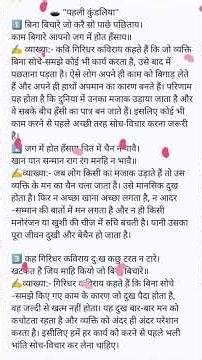 "पहली कुंडलिया"
1 बिना बिचारे जो करै सो पाछे पछिताय।
काम बिगारे आपनो जग में होत हँसाय॥
व्याख्या:- कवि गिरिधर कविराय कहते हैं कि जो व्यक्ति
बिना सोचे-समझे कोई भी कार्य करता है, उसे बाद में
पछताना पड़ता है। ऐसे लोग अपने ही काम को बिगाड़ लेते
हैं और अपने ही हाथों अपमान का कारण बनते हैं। परिणाम
यह होता है कि दुनिया में उनका मजाक उड़ाया जाता है और
वे सबके बीच हँसी का पात्र बन जाते हैं। इसलिए कोई भी
काम करने से पहले अच्छी तरह सोच-विचार करना जरूरी
है।
2 जग में होत हँसाय चित में चैन न भावै।
खान पान सन्मान राग रंग मनहि न भावै॥
व्याख्या:- जब लोग किसी का मजाक उड़ाते हैं तो उस
व्यक्ति के मन का चैन चला जाता है। उसे मानसिक दुख
होता है। फिर न अच्छा खाना अच्छा लगता है, न आदर
-सम्मान की बातों में मन लगता है और न ही किसी
मनोरंजन या खुशी की चीज़ में रुचि बचती है। यानी उसका
पूरा जीवन दुखी और बेचैन हो जाता है।
3 कह गिरिधर कविराय दुःख कछु टरत न टारे।
खटकत है जिय माहि कियो जो बिना बिचारे॥
व्याख्या:- गिरिधर कविराय कहते हैं कि बिना सोचे
-समझे किए गए काम के कारण जो दुख पैदा होता है,
वह जल्दी से खत्म नहीं होता। यह दुख बार-बार मन को
कचोटता रहता है और व्यक्ति को अंदर ही अंदर परेशान
करता है। इसीलिए हमें हर कार्य को करने से पहले भली
भांति सोच-विचार कर लेना चाहिए।